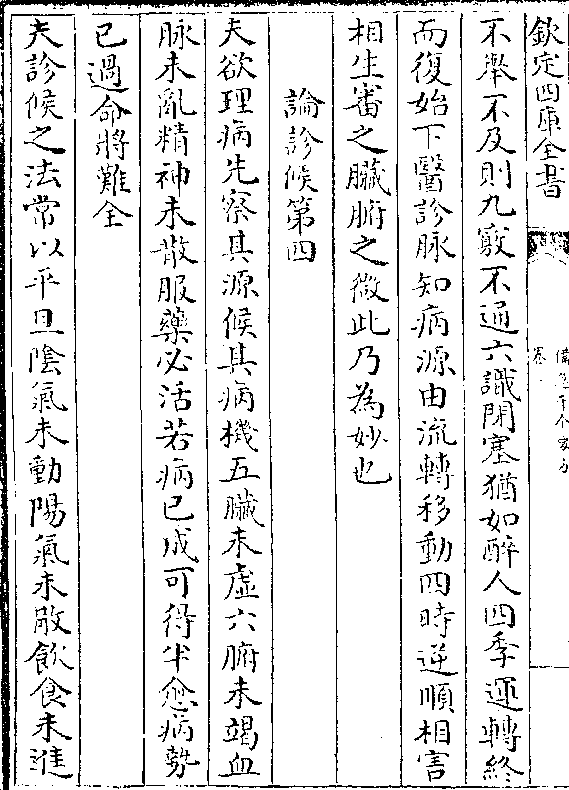 欽定四庫全書
備急千金要方
卷一
不舉不及則九竅不通六識閉塞猶如醉人四季運轉終
而復始下醫診脉知病源由流轉移動四時逆順相害
相生審之臟腑之微此乃為妙也
論診候第四
夫欲理病先察其源候其病機五臟未虛六腑未竭血
脉未亂精神未散服藥必活若病已成可得半愈病勢
已過命將難全
夫診候之法常以平旦陰氣未動陽氣未散飲食未進